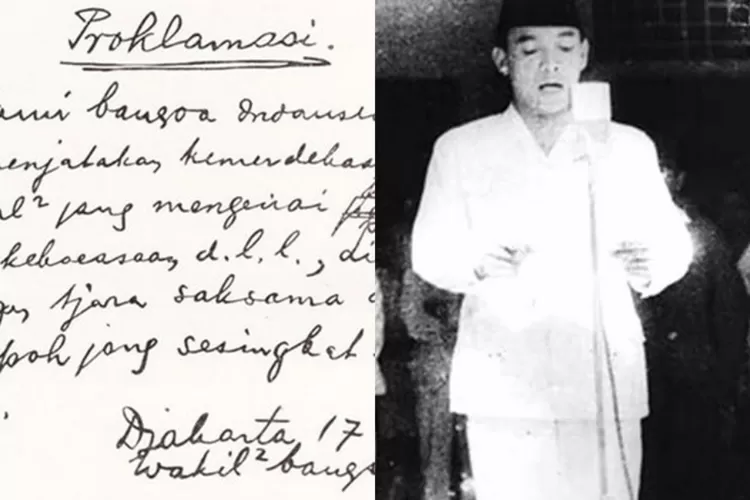 Proklamasi.
ami bangsa Indonesi
enjatakan kemerdekaa
al² jang mengenai
keboeasaan d.l.l., di
tjara saksama
poh jang sesingkat
Djakarta, 17
wakil² bangs